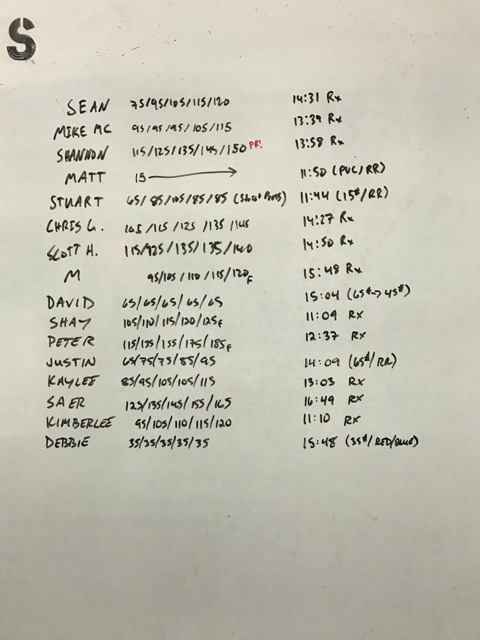 S
SEAN 75/95/105/115/120 14:31 Rx
MIKE MC 95/95/95/105/115 13:39 Rx
SHANNON 115/125/135/145/150 PR! 13:58 Rx
MATT 15 → 11:50 (PVC/RR)
STUART 65/85/105/85/85 (Short Press) 11:44 (15#/RR)
CHRIS G. 105/115/125/135/145 14:27 Rx
SCOTT H. 115/125/135/135/140 14:50 Rx
M 95/105/110/115/120F 15:48 Rx
DAVID 65/65/65/65/65 15:04 (65#→45#)
SHAY 105/110/115/120/125F 11:09 Rx
PETER 115/135/155/175/185F 12:37 Rx
JUSTIN 65/75/75/85/95 14:09 (65#/RR)
KAYLEE 85/95/105/105/115 13:03 Rx
SAER 125/135/145/155/165 16:49 Rx
KIMBERLEE 95/105/110/115/120 11:10 Rx
DEBBIE 35/35/35/35/35 15:48 (35#/RED/BLUE)